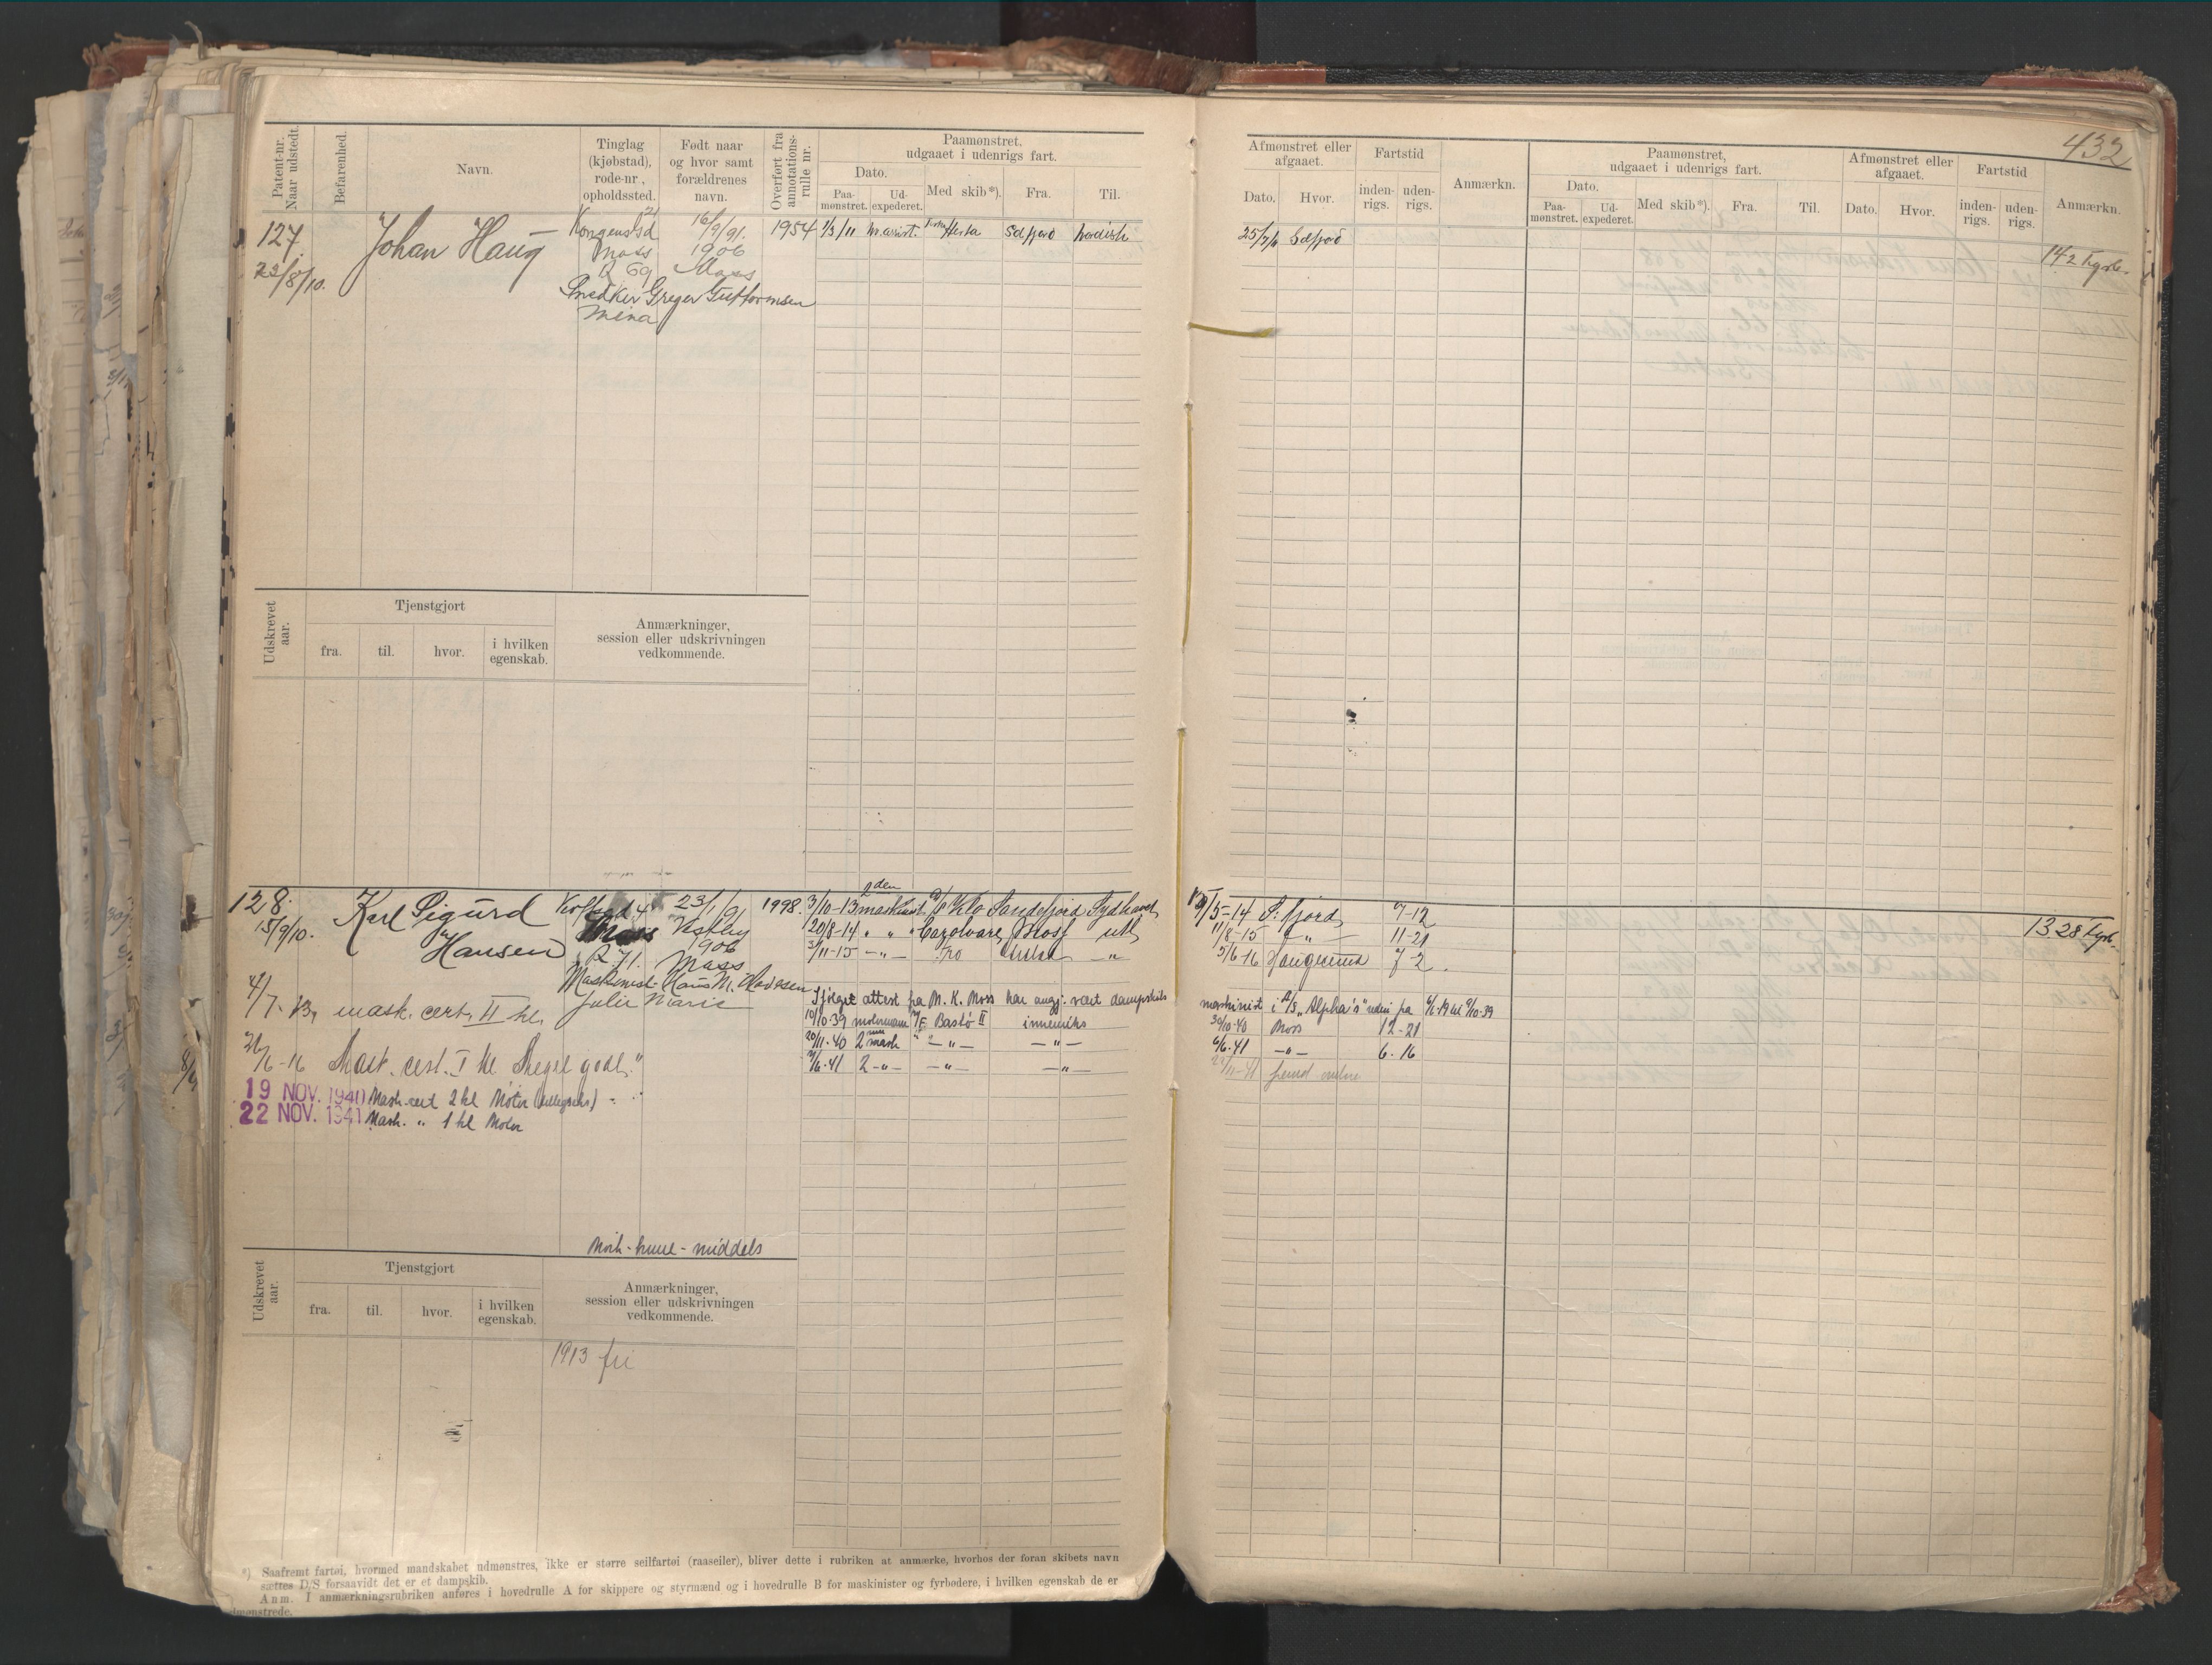 432
Patent-nr. Naar udstedt.
Befarenhed.
Navn.
Tinglag (kjøbstad), rode-nr., opholdssted.
Født naar og hvor samt forældrenes navn.
Overført fra annotations-rulle nr.
Paamønstret, udgaaet i udenrigs fart.
Dato.
Paa-mønstret.
Ud-expederet.
Med skib*).
Fra.
Til.
Afmønstret eller afgaaet.
Dato.
Hvor.
Fartstid
inden-rigs.
uden-rigs.
Anmærkn.
Paamønstret, udgaaet i udenrigs fart.
Dato.
Paa-mønstret.
Ud-expederet.
Med skib*).
Fra.
Til.
Afmønstret eller afgaaet.
Dato.
Hvor.
Fartstid
inden-rigs.
uden-rigs.
Anmærkn.
127
23/8/10.
Johan Haug
Moss
R 69
16/9/91.
1906
Moss
Snedker Greger Guttormsen
Mina
1954
1/3/11 m.assist. Herta Sdfjord
25/7/11 Sdfjord
142
Udskrevet aar.
Tjenstgjort
fra.
til.
hvor.
i hvilken egenskab.
Anmærkninger, session eller udskrivningen vedkommende.
128.
15/9/10.
Karl Sigurd
Hansen
Moss
R 71.
23/1/91
Vestby
1906
Moss
Maskinist Hans M.
Julie Marie
1998.
3/10-13 2den maskinist. Sandefjord Sydhavet
20/8-14 " " Moss utl
3/11-15 -"- -"-
5-14 S:fjord 7-12
11/8-15 -"- 11-21
5/6-16 Haugesund 7-2.
1328
4/7-13, mask. cert. II kl.
attest fra M. K. Moss har angj. vært dampskibs
maskinist i "Alpha's"
10/10-39 motormann M/F Bastø II innenriks
30/10-40 Moss 12-21
20/11-40 2 mask -"- -"-
6/6-41 -"- 6-16
7/6-41 2 -"- -"- -"-
26/6-16 Mask. cert. I kl. Meget godt."
19 NOV. 1940 Mask-cert 2 kl Motor
22 NOV. 1941 Mask. " 1 kl Motor
middels
Udskrevet aar.
Tjenstgjort
fra.
til.
hvor.
i hvilken egenskab.
Anmærkninger, session eller udskrivningen vedkommende.
1913 fri
*) Saafremt fartøi, hvormed mandskabet udmønstres, ikke er større seilfartøi (raaseiler), bliver dette i rubriken at anmærke, hvorhos der foran skibets navn
sættes D/S forsaavidt det er et dampskib.
Anm. I anmærkningsrubriken anføres i hovedrulle A for skippere og styrmænd og i hovedrulle B for maskinister og fyrbødere, i hvilken egenskab de er
udmønstrede.